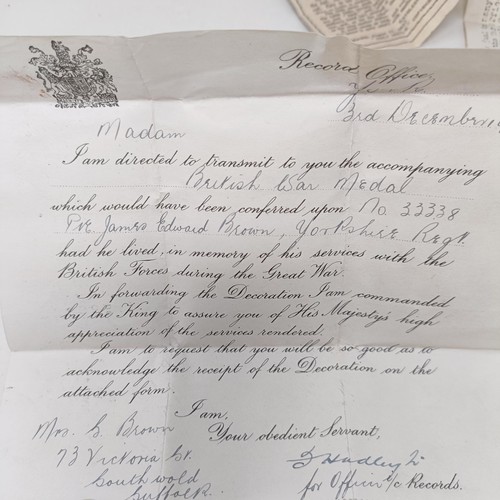 Record Office
York
3rd December
Madam
I am directed to transmit to you the accompanying
British War Medal
which would have been conferred upon No. 33338
Pte. James Edward Brown, Yorkshire Regt.
had he lived, in memory of his services with the
British Forces during the Great War.
In forwarding the Decoration I am commanded
by the King to assure you of His Majesty's high
appreciation of the services rendered.
I am to request that you will be so good as to
acknowledge the receipt of the Decoration on the
attached form.
I am,
Your obedient Servant,
Mrs. S. Brown
73 Victoria St.
Southwold
Suffolk.
for Officer i/c Records.